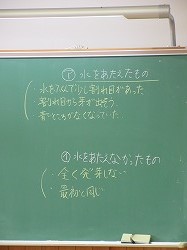 ㋐ 水をあたえたもの
・水をふくんで少し割れ目があった
・割れ目から芽が出そう。
・
㋑ 水をあたえなかったもの
・全く発芽しない
・最初と同じ